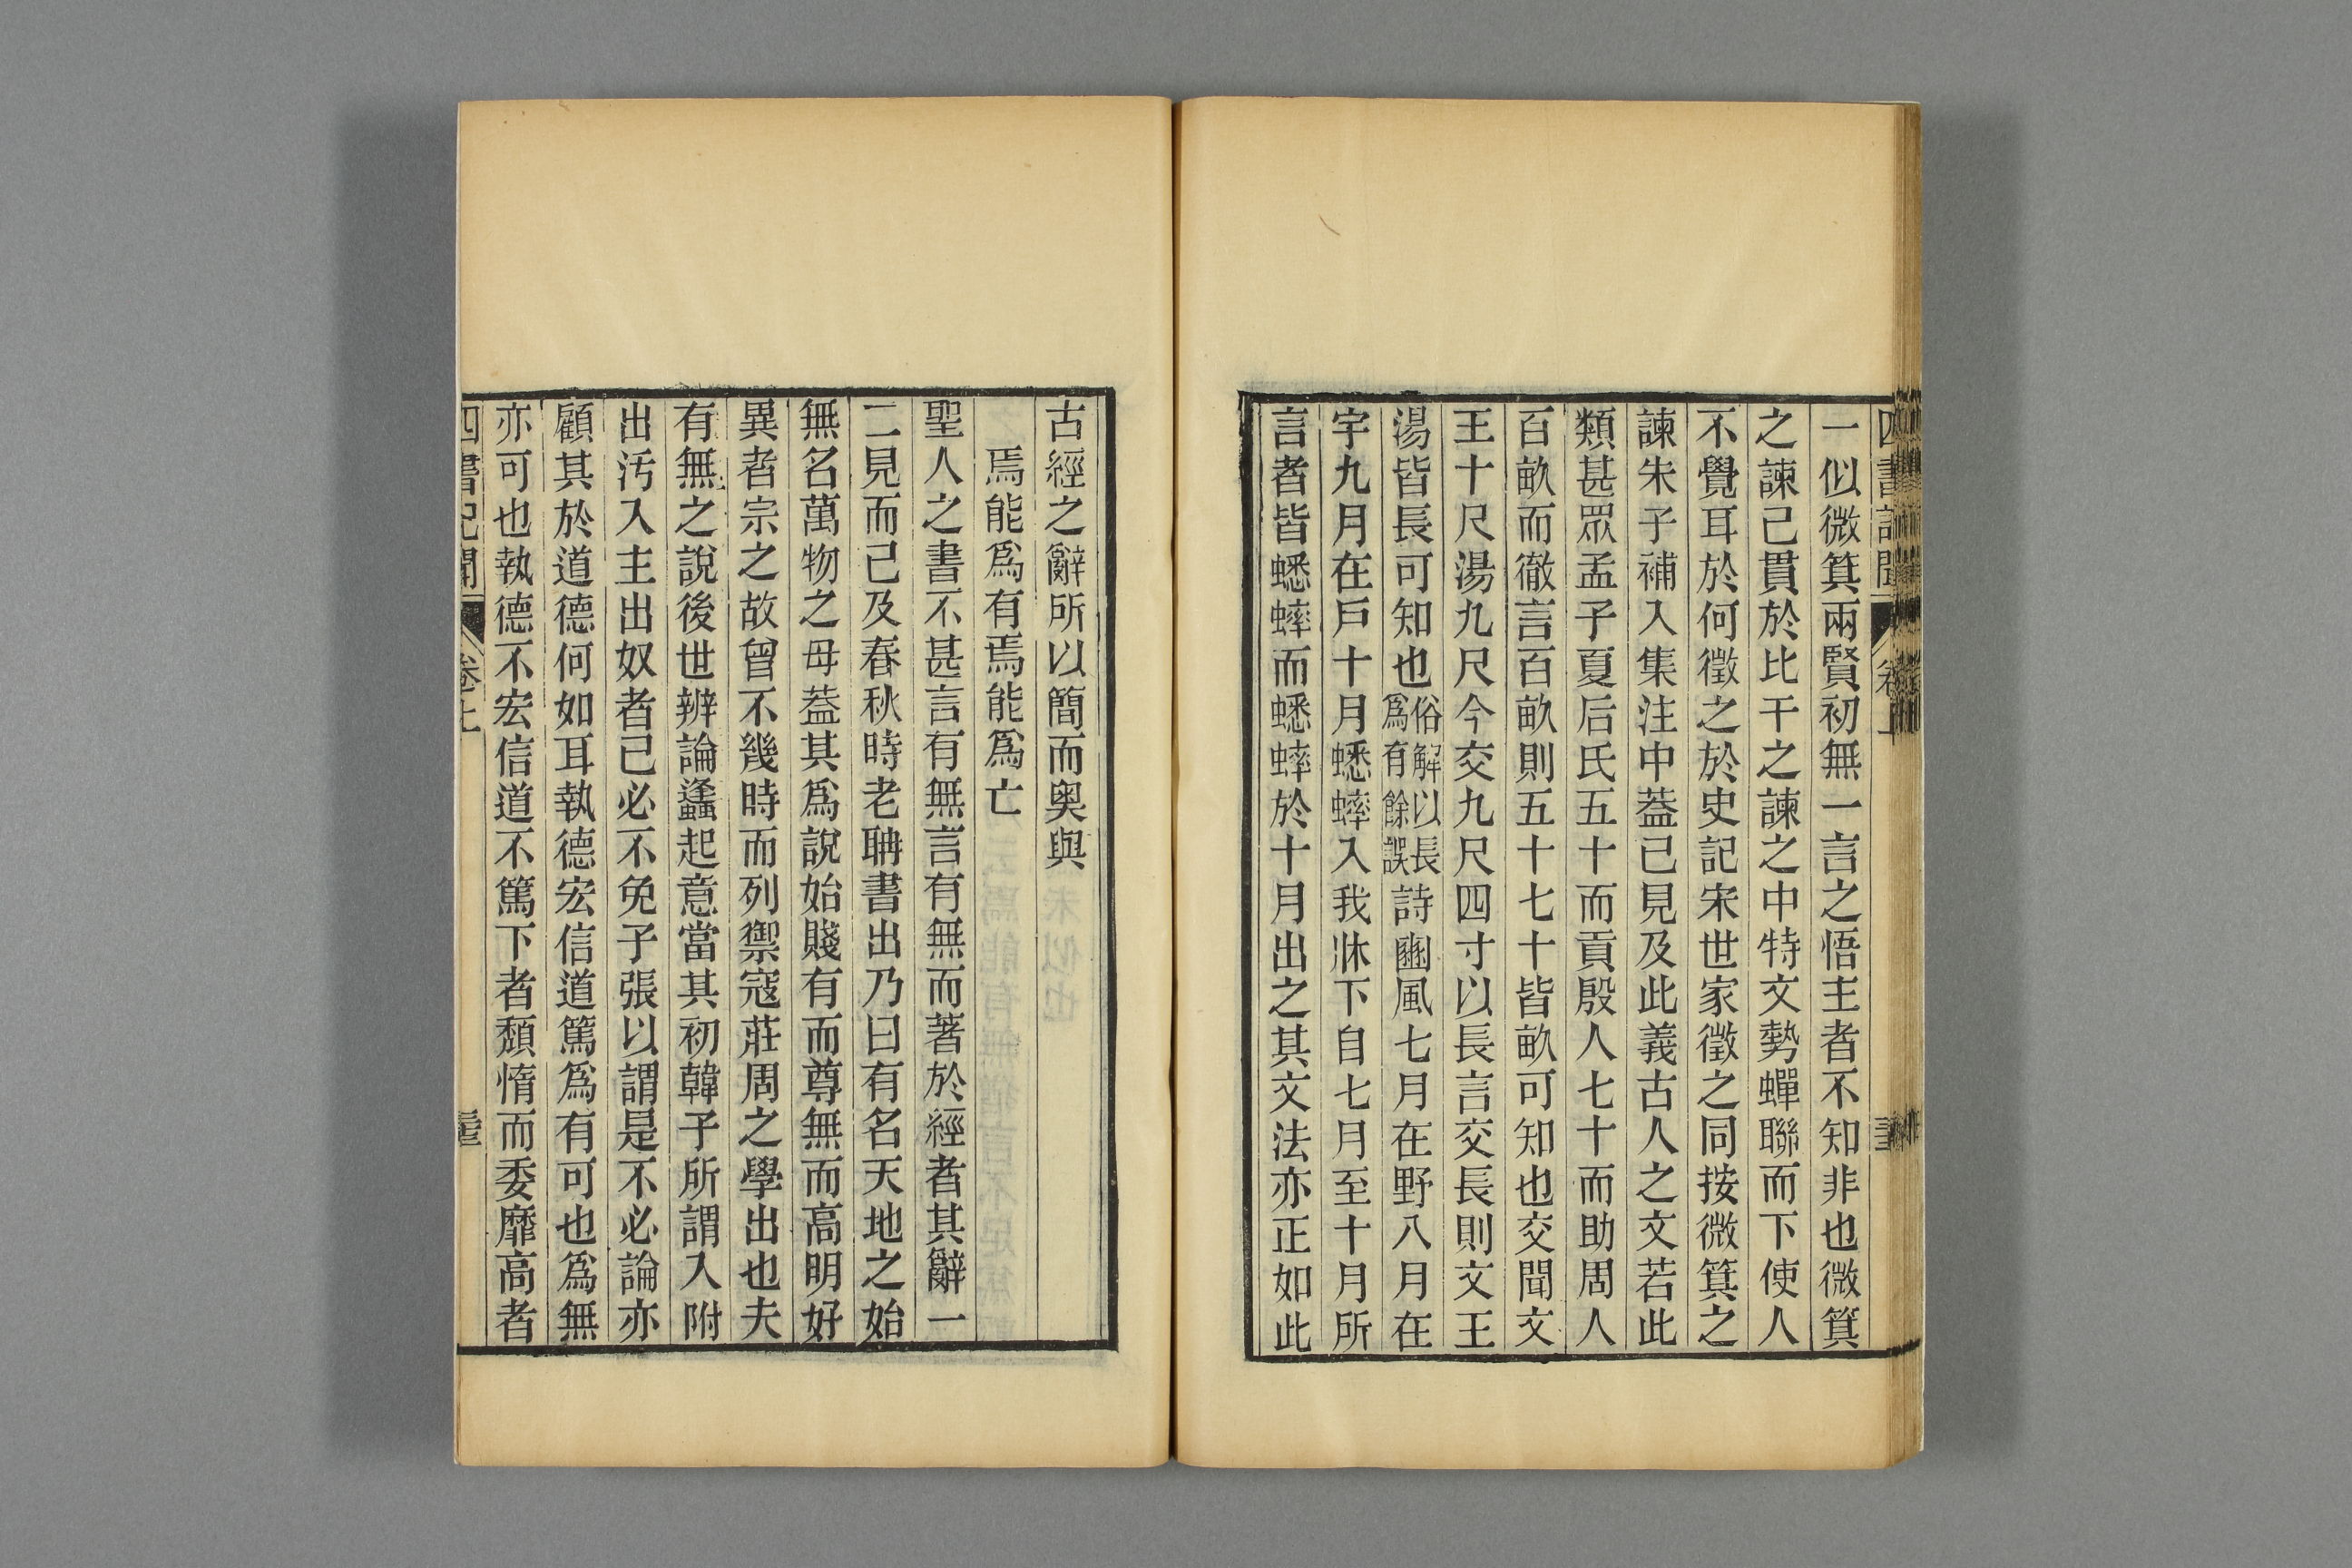 四書記聞 卷上
一似微箕兩賢初無一言之悟主者不知非也微箕
之諫已貫於比干之諫之中特文勢蟬聯而下使人
不覺耳於何徵之於史記宋世家徵之同按微箕之
諫朱子補入集注中葢已見及此義古人之文若此
類甚眾孟子夏后氏五十而貢殷人七十而助周人
百畝而徹言百畝則五十七十皆畝可知也交聞文
王十尺湯九尺今交九尺四寸以長言交長則文王
湯皆長可知也俗解以長爲有餘誤詩豳風七月在野八月在
宇九月在戶十月蟋蟀入我牀下自七月至十月所
言者皆蟋蟀而蟋蟀於十月出之其文法亦正如此
古經之辭所以簡而奥與
焉能爲有焉能爲亡
聖人之書不甚言有無言有無而著於經者其辭一
二見而已及春秋時老聃書出乃曰有名天地之始
無名萬物之母葢其爲說始賤有而尊無而高明好
異者宗之故曾不幾時而列禦寇莊周之學出也夫
有無之說後世辨論蠭起意當其初韓子所謂入附
出汚入主出奴者已必不免子張以謂是不必論亦
顧其於道德何如耳執德宏信道篤爲有可也爲無
亦可也執德不宏信道不篤下者頽惰而委靡高者
四書記聞 卷上